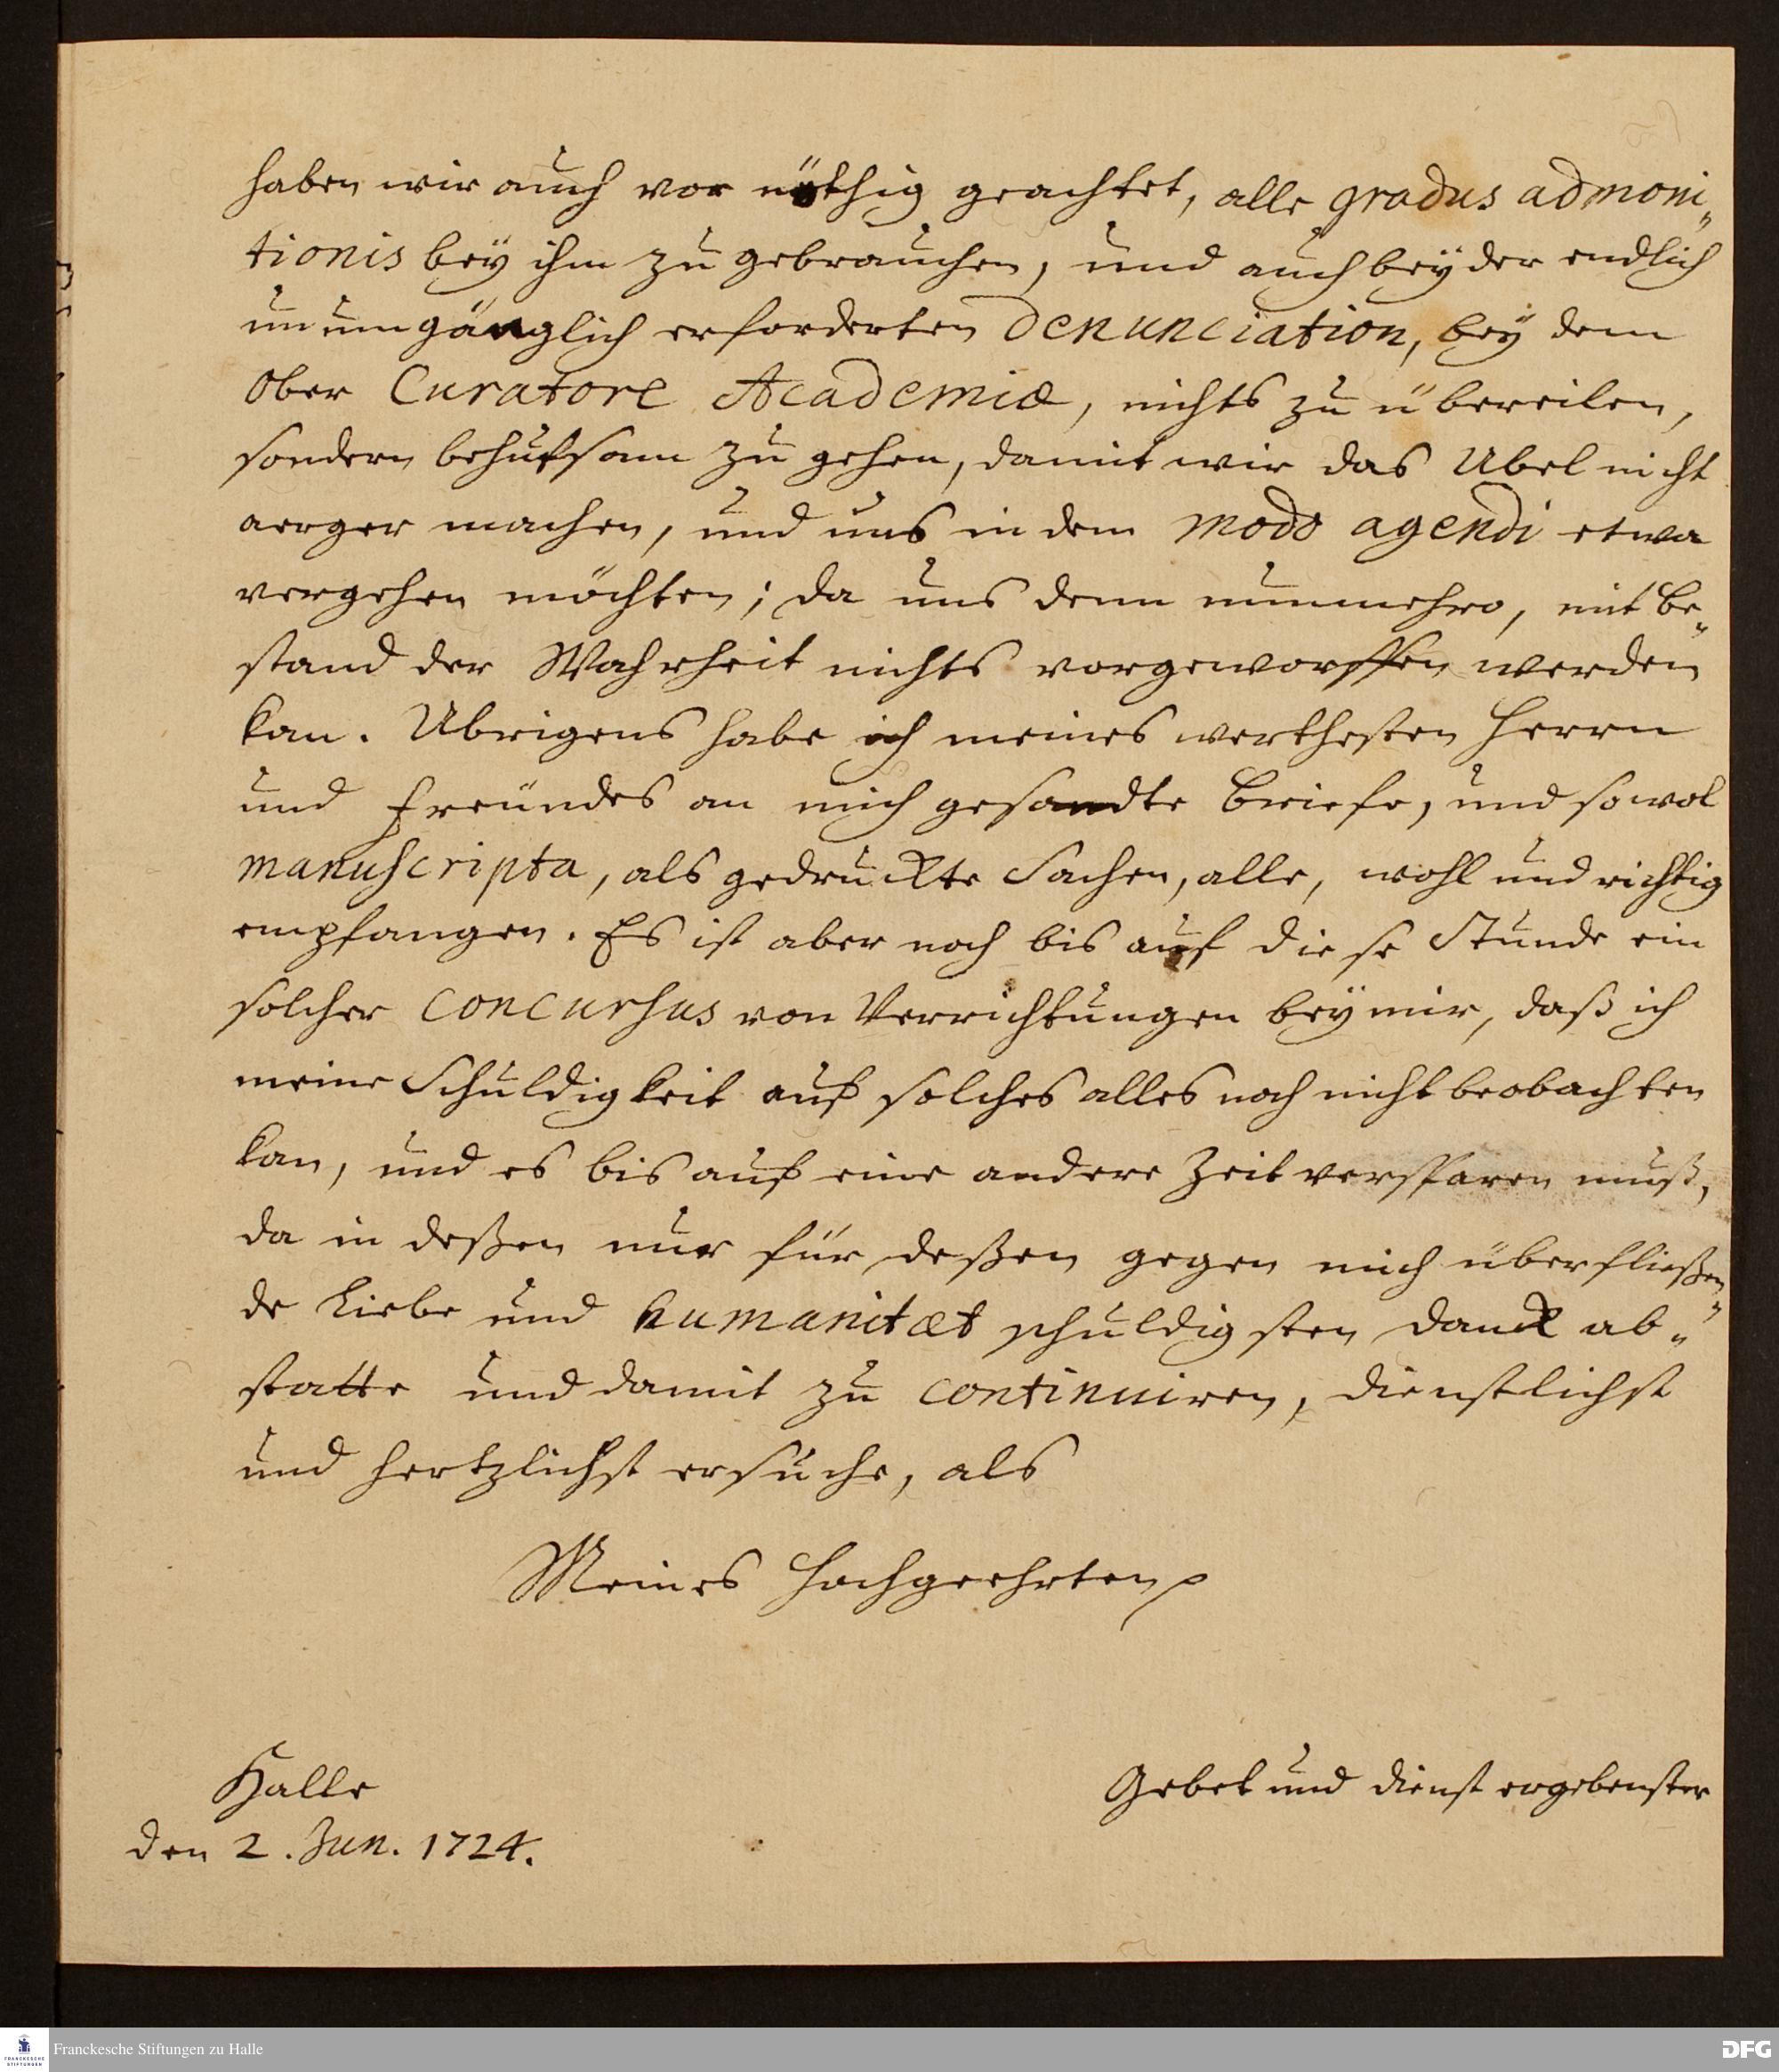 haben wir auch vor nöthig geachtet, alle gradus admoni„
tionis beÿ ihm zu gebrauchen, und auch beÿ der endlich
unumgänglich erforderten Denunciation, beÿ dem
Ober Curatore Academiæ, nichts zu übereilen,
sondern behutsam zu gehen, damit wir das Ubel nicht
aerger machen, und uns in dem modo agendi etwa
vergehen möchten; da uns denn nunmehro, mit be„
stand der Wahrheit nichts vorgeworffen werden
kan. Ubrigens habe ich meines werthesten Herrn
und Freundes an mich gesandte Briefe, und sowol
manuscripta, als gedruckte Sachen, alle, wohl und richtig
empfangen. Es ist aber noch bis auf diese Stunde ein
solcher concursus von Verrichtungen beÿ mir, daß ich
meine Schuldigkeit auf solches alles noch nicht beobachten
kan, und es bis auf eine andere Zeit verspaaren muß,
da in deßen nur für deßen gegen mich überfließen„
de Liebe und humanitæt schuldigsten danck ab„
statte und damit zu continuiren, dienstlichst
und hertzlichst ersuche, als
Meines Hochgeehrten
Halle
den 2. Jun. 1724.
Gebet und dienst ergebenster
Franckesche Stiftungen zu Halle
FRANCKESCHE
STIFTUNGEN
DFG